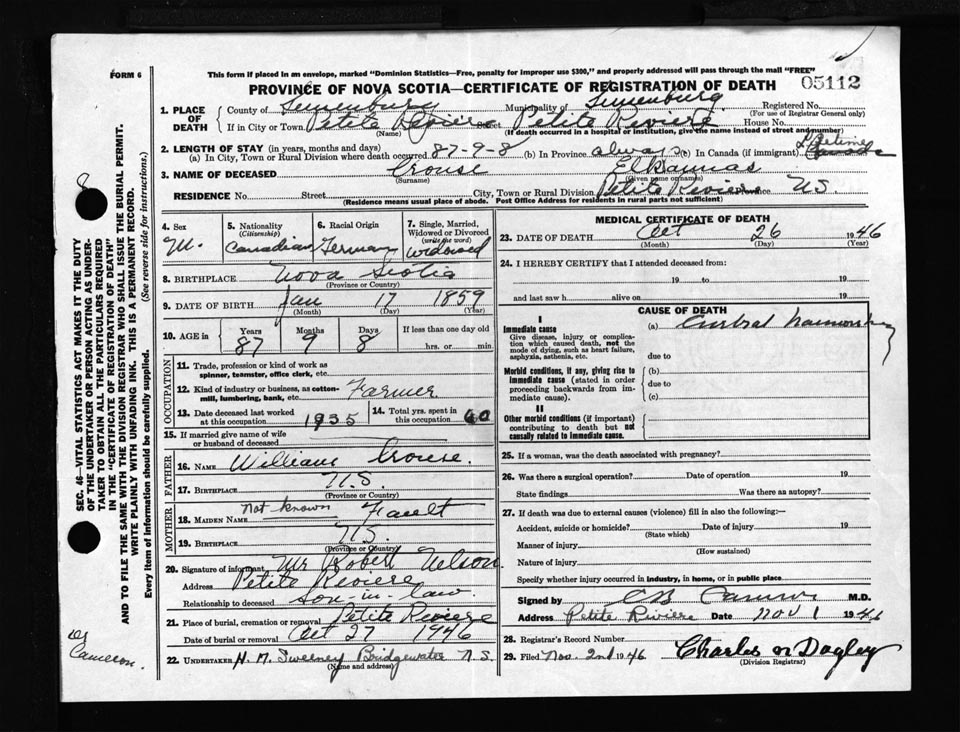 FORM 6
This form if placed in an envelope, marked "Dominion Statistics—Free, penalty for improper use $300," and properly addressed will pass through the mail "FREE"
PROVINCE OF NOVA SCOTIA—CERTIFICATE OF REGISTRATION OF DEATH
05112
1. PLACE OF DEATH
County of Lunenburg Municipality of Lunenburg Registered No.
(For use of Registrar General only)
If in City or Town. Petite Riviere Street Petite Riviere House No.
(Name) (If death occurred in a hospital or institution, give the name instead of street and number)
2. LENGTH OF STAY (in years, months and days)
(a) In City, Town or Rural Division where death occurred 87-9-8 (b) In Province always (c) In Canada (if immigrant) Lifetime Canada
3. NAME OF DECEASED Crouse Elkannas
(Surname) (Given name or names)
RESIDENCE No. Street City, Town or Rural Division Petite Riviere Province N.S.
(Residence means usual place of abode. Post Office Address for residents in rural parts not sufficient)
4. Sex
M.
5. Nationality
(Citizenship)
Canadian
6. Racial Origin
German
7. Single, Married, Widowed or Divorced
(write the word)
Widowed
8. BIRTHPLACE Nova Scotia
(Province or Country)
9. DATE OF BIRTH Jan 17 1859
(Month) (Day) (Year)
10. AGE in
Years Months Days If less than one day old
87 9 8 hrs. or min
OCCUPATION
11. Trade, profession or kind of work as
spinner, teamster, office clerk, etc.
12. Kind of industry or business, as cotton-
mill, lumbering, bank, etc. Farmer
13. Date deceased last worked
at this occupation 1935
14. Total yrs. spent in
this occupation 60
15. If married give name of wife
or husband of deceased
FATHER
16. NAME William Crouse.
17. BIRTHPLACE N.S.
(Province or Country)
MOTHER
18. MAIDEN NAME not known Fault
19. BIRTHPLACE N.S.
(Province or Country)
20. Signature of informant Mr Robert Nelson
Address Petite Riviere
Relationship to deceased son-in-law
21. Place of burial, cremation or removal Petite Riviere
Date of burial or removal Oct 27 1946
22. UNDERTAKER H. M. Sweeney Bridgewater N.S.
(Name and address)
MEDICAL CERTIFICATE OF DEATH
23. DATE OF DEATH Oct 26 1946
(Month) (Day) (Year)
24. I HEREBY CERTIFY that I attended deceased from:
19 to 19
and last saw h alive on 19
CAUSE OF DEATH
I
Immediate cause
Give disease, injury or complication which caused death, not the mode of dying, such as heart failure, asphyxia, asthenia, etc.
(a)
due to
Morbid conditions, if any, giving rise to immediate cause (stated in order proceeding backwards from immediate cause).
(b)
due to
(c)
II
Other morbid conditions (if important) contributing to death but not causally related to immediate cause.
25. If a woman, was the death associated with pregnancy?
26. Was there a surgical operation? Date of operation 19
State findings Was there an autopsy?
27. If death was due to external causes (violence) fill in also the following:—
Accident, suicide or homicide? Date of injury 19
(State which)
Manner of injury
(How sustained)
Nature of injury
Specify whether injury occurred in industry, in home, or in public place
Signed by M.D.
Address Petite Riviere Date Nov 1 1946
28. Registrar's Record Number
29. Filed Nov. 2nd 1946 Charles M Dagley
(Division Registrar)
SEC. 46—VITAL STATISTICS ACT MAKES IT THE DUTY
OF THE UNDERTAKER OR PERSON ACTING AS UNDER-
TAKER TO OBTAIN ALL THE PARTICULARS REQUIRED
IN THE "CERTIFICATE OF REGISTRATION OF DEATH"
AND TO FILE THE SAME WITH THE DIVISION REGISTRAR WHO SHALL ISSUE THE BURIAL PERMIT.
WRITE PLAINLY WITH UNFADING INK. THIS IS A PERMANENT RECORD.
Every item of information should be carefully supplied. (See reverse side for instructions.)
Dr Cameron.